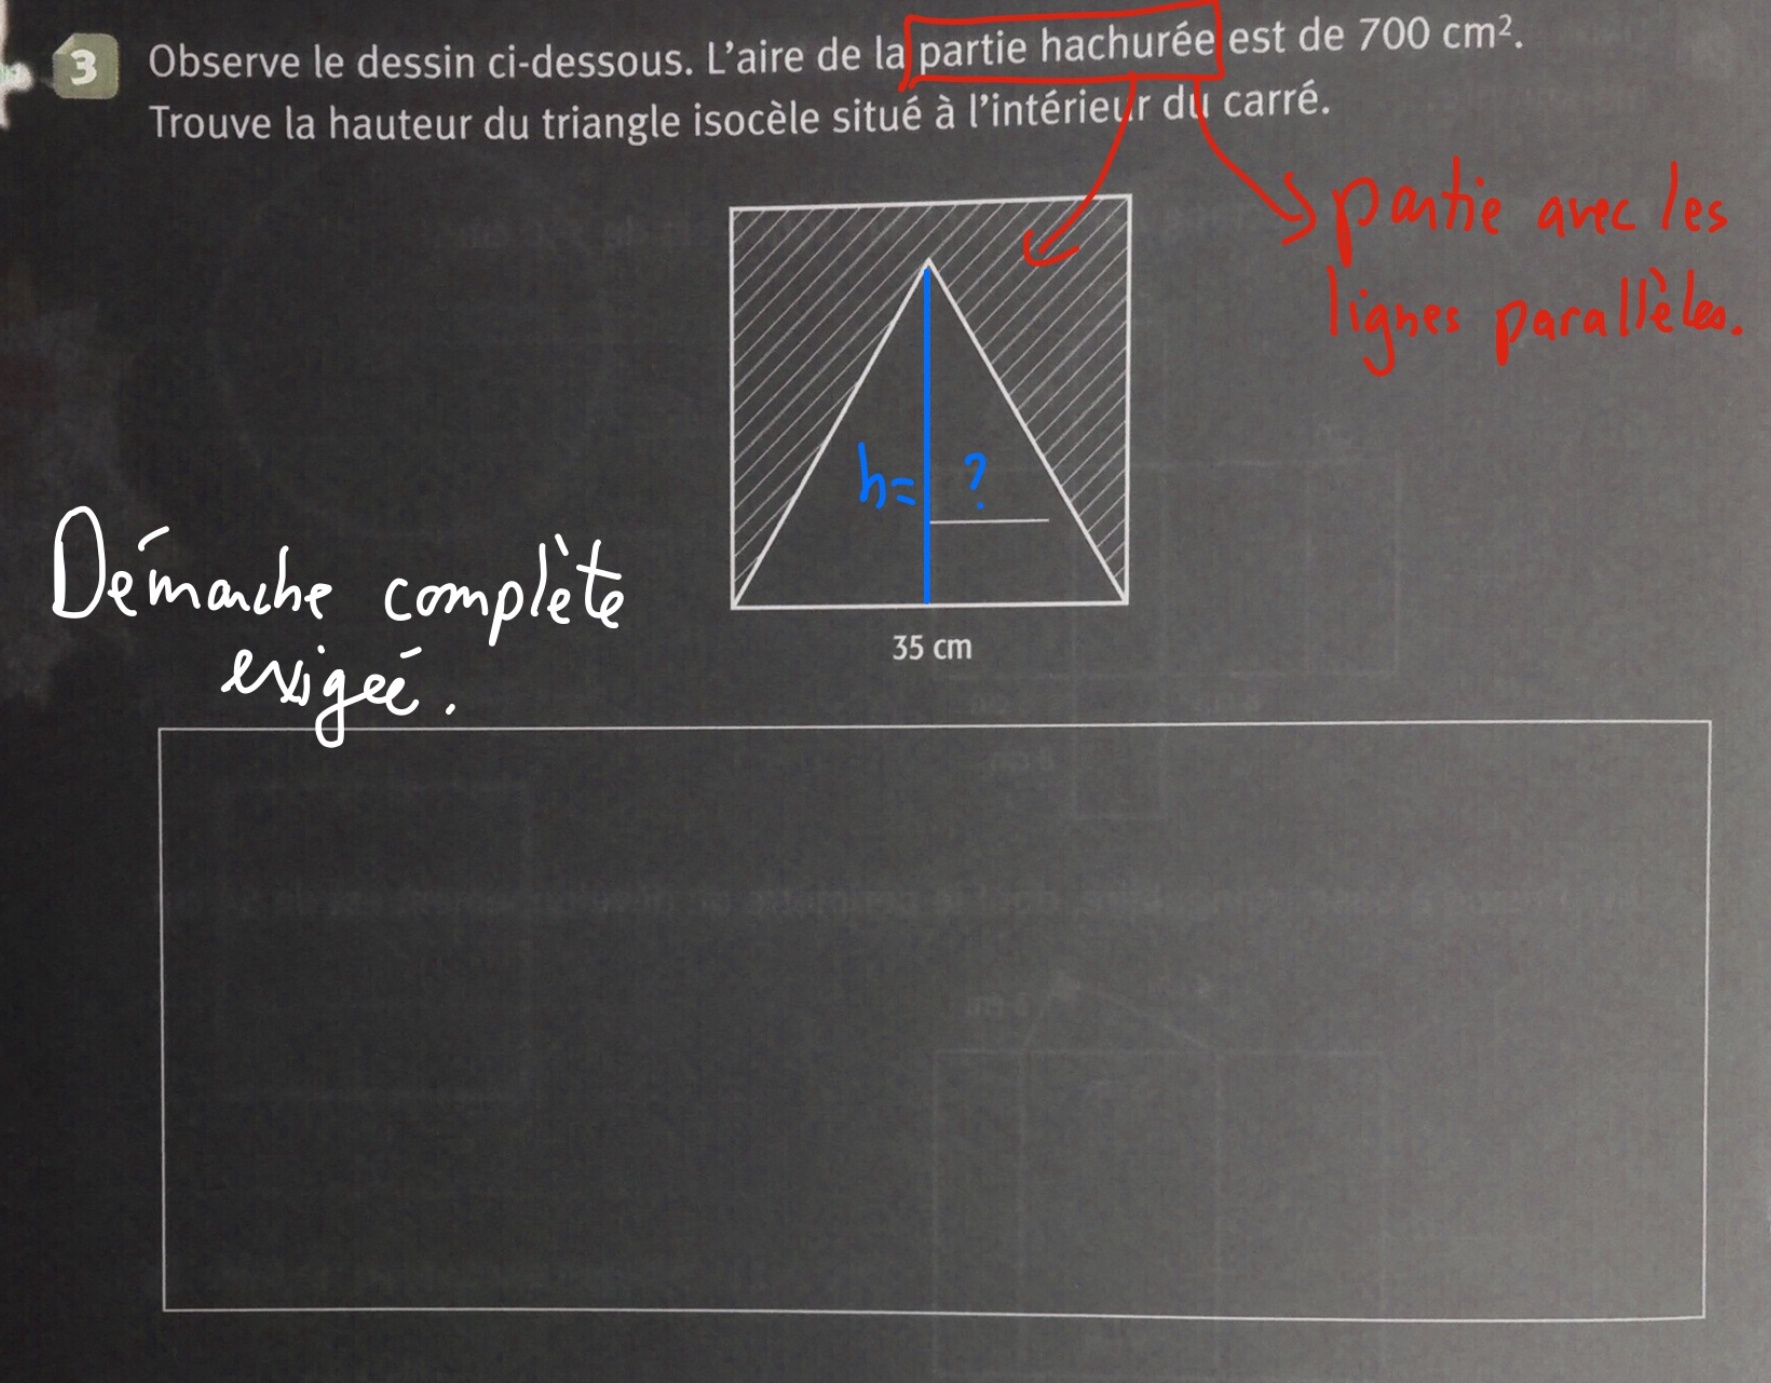 3 Observe le dessin ci-dessous. L'aire de la partie hachurée est de 700 cm².
Trouve la hauteur du triangle isocèle situé à l'intérieur du carré.
partie avec les
lignes parallèles.
h= ?
Démarche complète
exigée.
35 cm